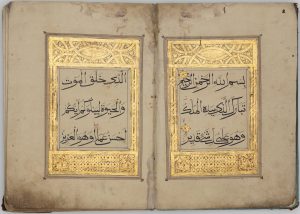 بسم الله الرحمن الرحيم
تبارك الذي بيده الملك
وهو على كل شيء قدير
الذي خلق الموت
والحيوة ليبلوكم ايكم
احسن عملا وهو العزيز